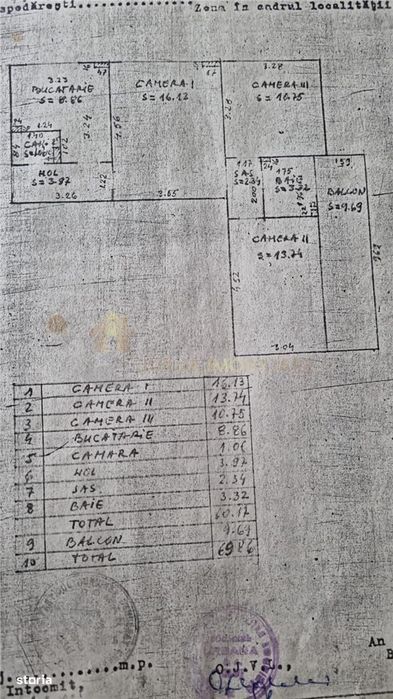 Zona în cadrul localității
3.23
BUCATARIE
S=8.86
47
CAMERA I
S=16.13
67
3.28
CAMERA III
S=10.75
3.24
4.56
3.28
1.24
HOL
S=3.97
1.22
3.26
3.55
1.17
SAS
1.75
BAIE
1.59
BALCON
S=9.69
CAMERA II
S=13.74
4.52
3.04
1 CAMERA I 16.13
2 CAMERA II 13.74
3 CAMERA III 10.75
4 BUCATARIE 8.86
5 CAMARA 1.06
6 HOL 3.97
7 SAS 2.34
8 BAIE 3.32
TOTAL 60.17
9 BALCON 9.69
10 TOTAL 69.86
m.p.
An
Intocmit,
O.J.V.L.,
storia